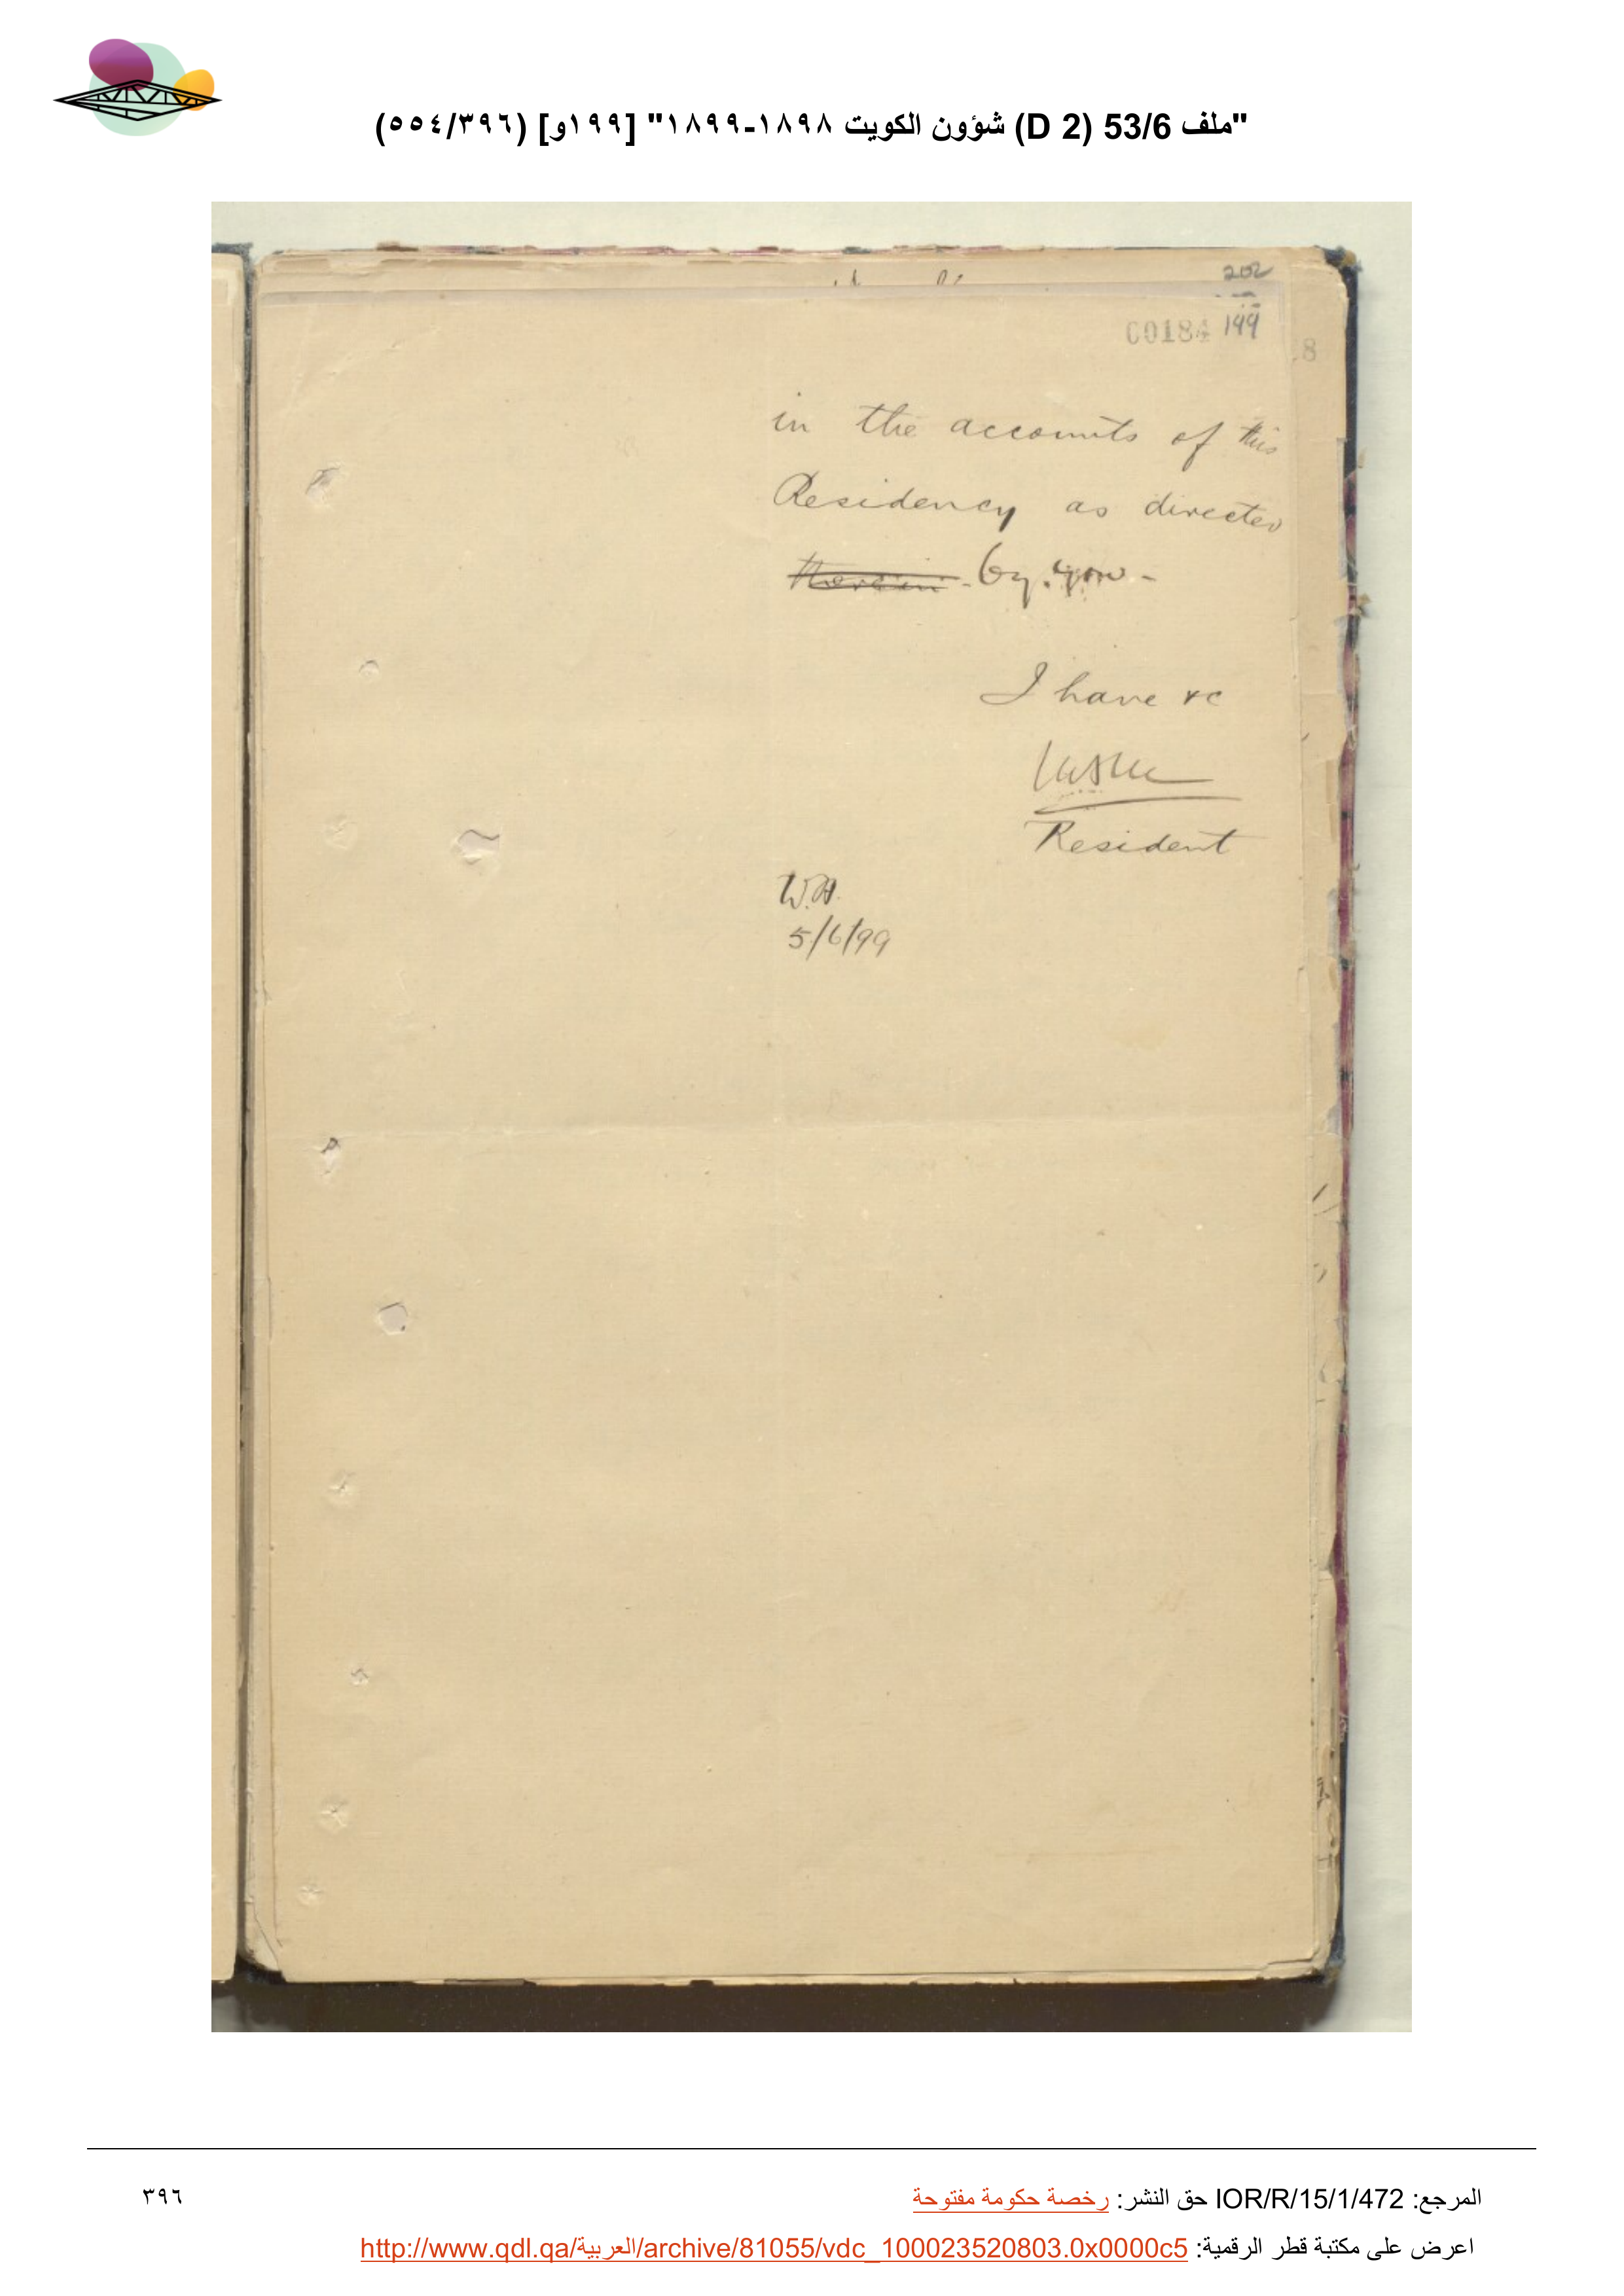 "ملف 53/6 (D 2) شؤون الكويت ١٨٩٨-١٨٩٩" [١٩٩و] (٥٥٤/٣٩٦)
202
00184 199
8
in the accounts of this
Residency as directed
therein - by you -
I have &c
Resident
W.H.
5/6/99
المرجع: IOR/R/15/1/472 حق النشر: رخصة حكومة مفتوحة
٣٩٦
اعرض على مكتبة قطر الرقمية: http://www.qdl.qa/العربية/archive/81055/vdc_100023520803.0x0000c5